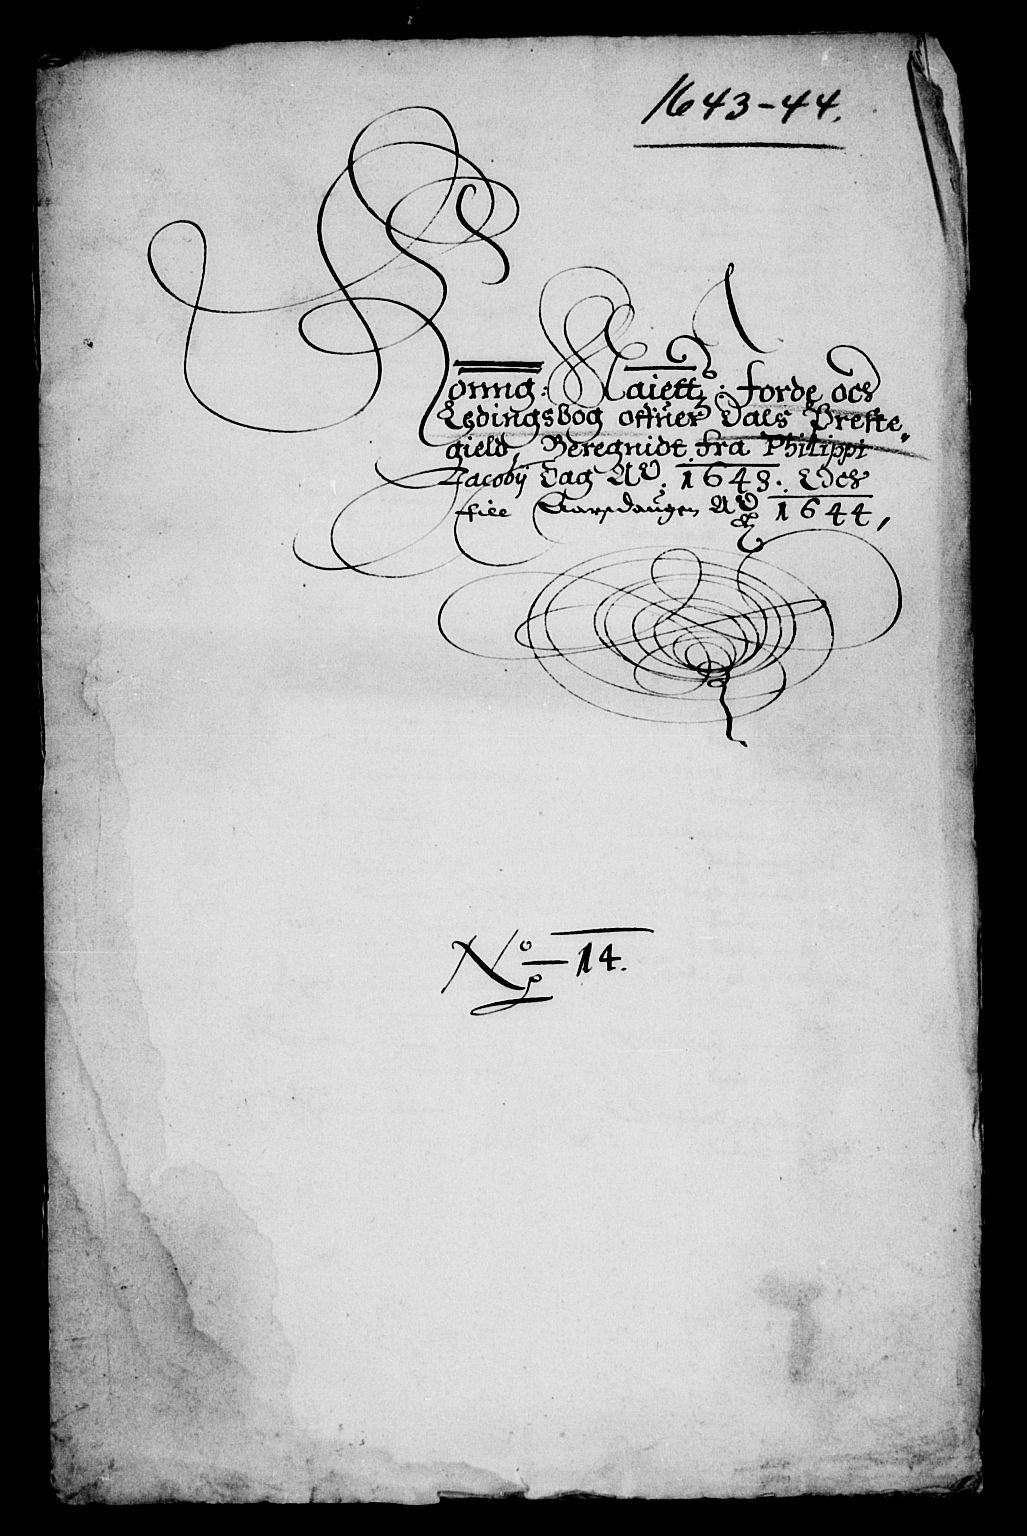 1643-44.
Konng: Maiettz: Jorde och
Ledingsbog offuer Dals Preste
gield, Beregnidt fra Philippi
Jacobij Dag A͠o. 1643. Och
till Aarsdaugen A͠o 1644,
No 14.